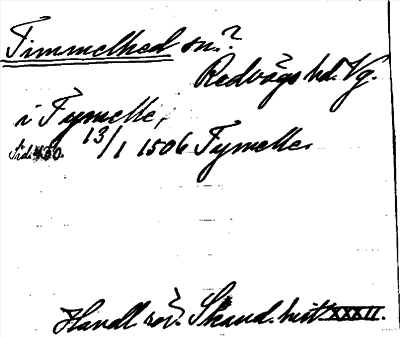 Timmelhed sn.?
Redvägs hd. Vg.
i Tymelle,
Sid. 13/1 1506 Tymelle.
Handl. rör. Skand. hist. XXXII.